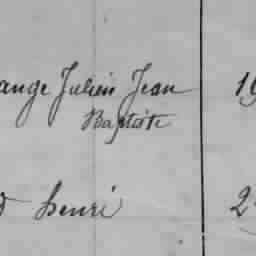 ange Julien Jean
Baptiste
henri